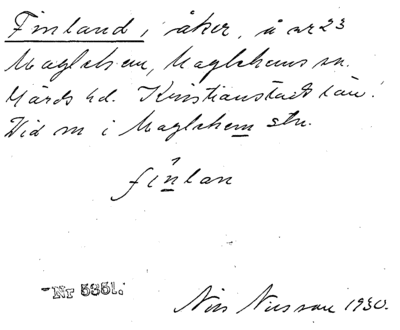 Finland, åker, å nr 23
Maglehem, Maglehems sn.
Gärds hd. Kristianstads län.
Vid m i Maglehem stn.
finlan
-Nr 5351.
Nils Nilsson 1930.